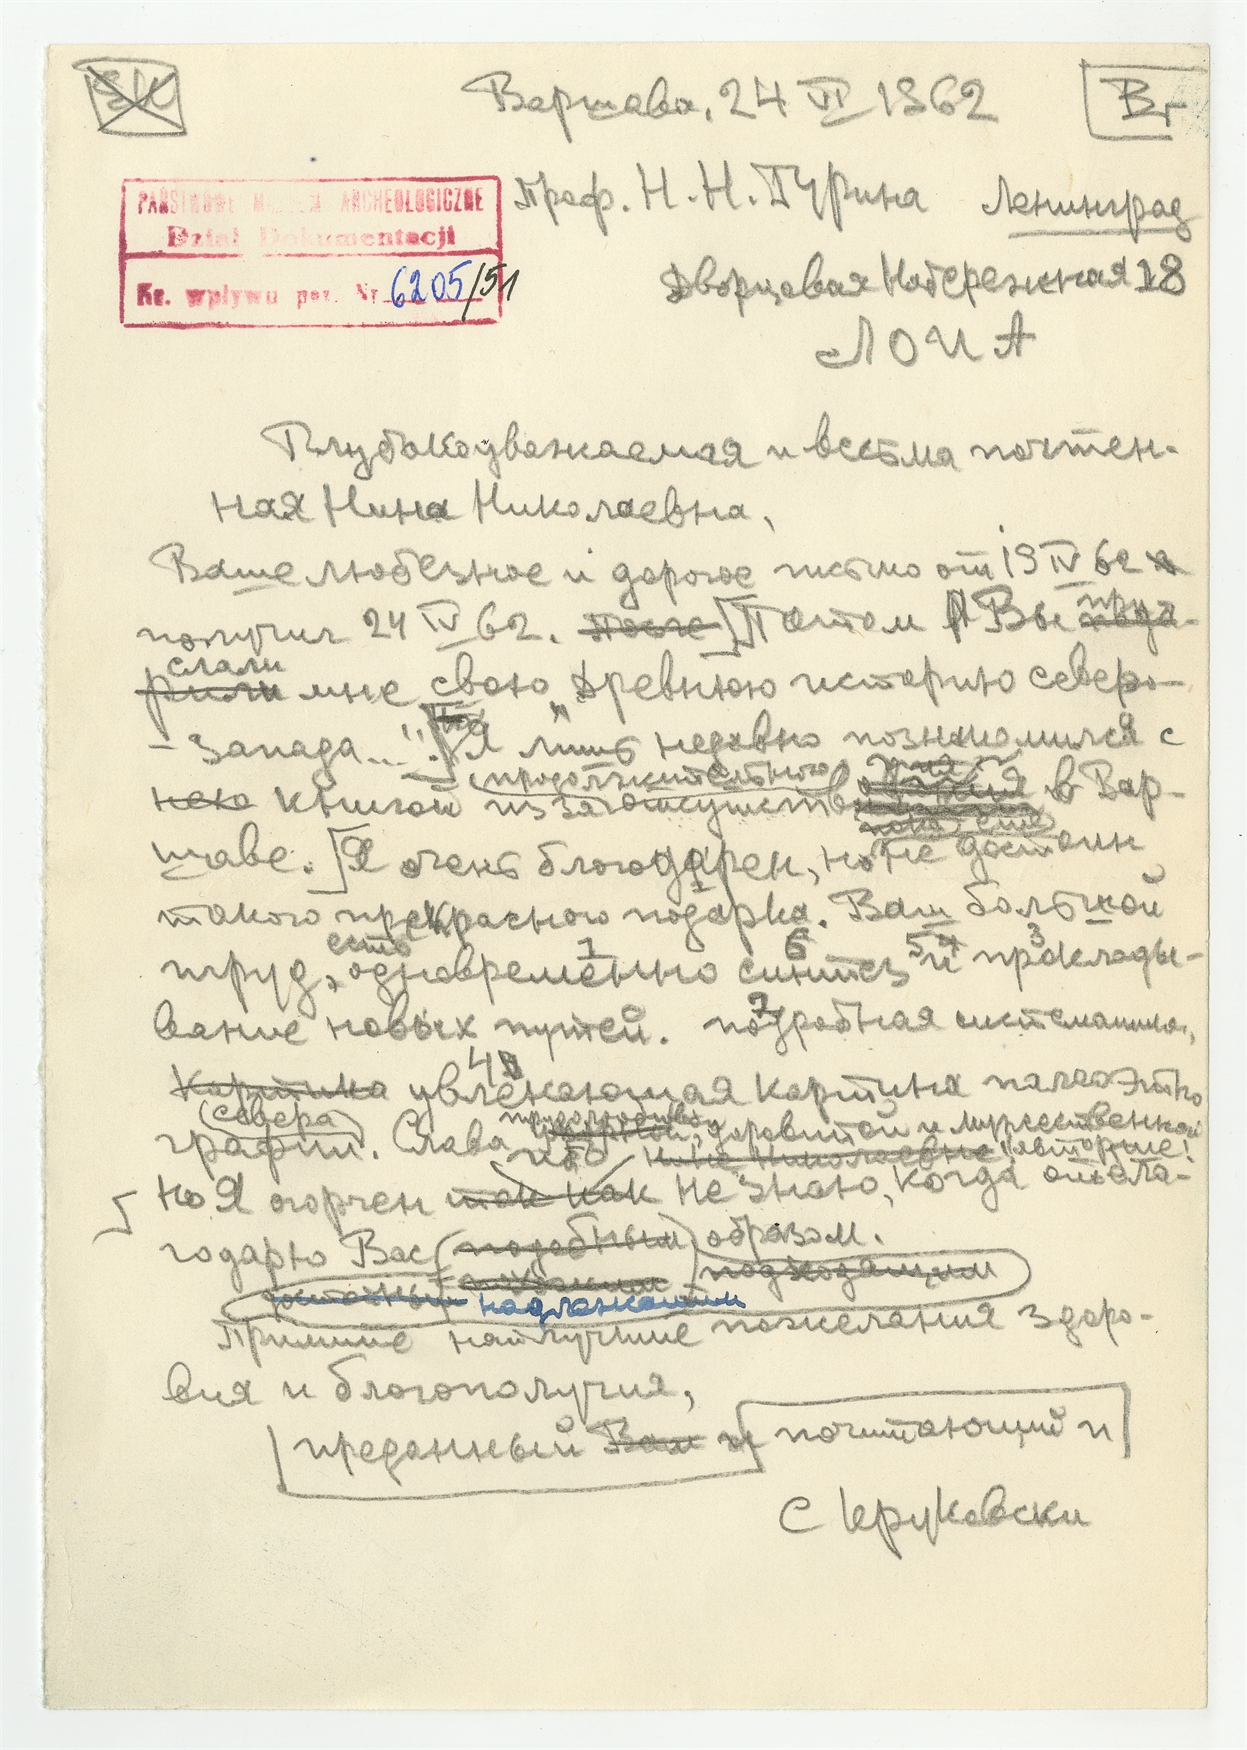 Варшава, 24 VI 1962
Br
PAŃSTWOWE MUZEUM ARCHEOLOGICZNE
Dział Dokumentacji
Kr. wpływu poz. Nr 6205/51
Проф. Н. Н. Гурина Ленинград
Дворцовая Набережная 18
ЛОИА
Глубокоуважаемая и весьма почтен-
ная Нина Николаевна,
Ваше любезное и дорогое письмо от 19 IV 62 я
получил 24 IV 62. после Потом Вы при
слали
мне свою „Древнюю историю северо-
-запада..." Я лишь недавно познакомился с
продолжительного
нею книгой из за отсутствия в Вар-
пока еще
шаве. Я очень благодарен, но не достоин
такого прекрасного подарка. Ваш большой
есть
труд, одновременно 1 синтез 6 5 и 4 прокладыва- 3
вание новых путей. подробная 2 систематика,
картина увлекающая 4 картина палеоэтно
севера
графии. Слава трудолюбивой, даровитой и мужественной
Нине Николаевне авторше!
Но я огорчен так как не знаю, когда отбла-
годарю Вас подобным образом.
подходящим
достойным надлежащим
Примите наилучшие пожелания здоро-
вия и благополучия,
преданный Вам и почитающий и
С Круковски